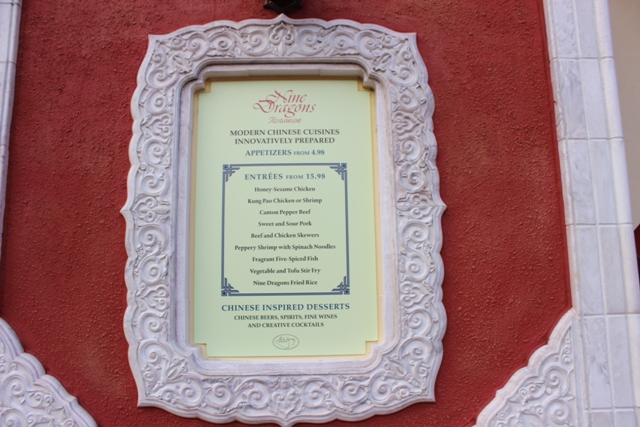 Nine
Dragons
Restaurant
MODERN CHINESE CUISINES
INNOVATIVELY PREPARED
APPETIZERS FROM 4.98
ENTRÉES FROM 15.98
Honey-Sesame Chicken
Kung Pao Chicken or Shrimp
Canton Pepper Beef
Sweet and Sour Pork
Beef and Chicken Skewers
Peppery Shrimp with Spinach Noodles
Fragrant Five-Spiced Fish
Vegetable and Tofu Stir Fry
Nine Dragons Fried Rice
CHINESE INSPIRED DESSERTS
CHINESE BEERS, SPIRITS, FINE WINES
AND CREATIVE COCKTAILS